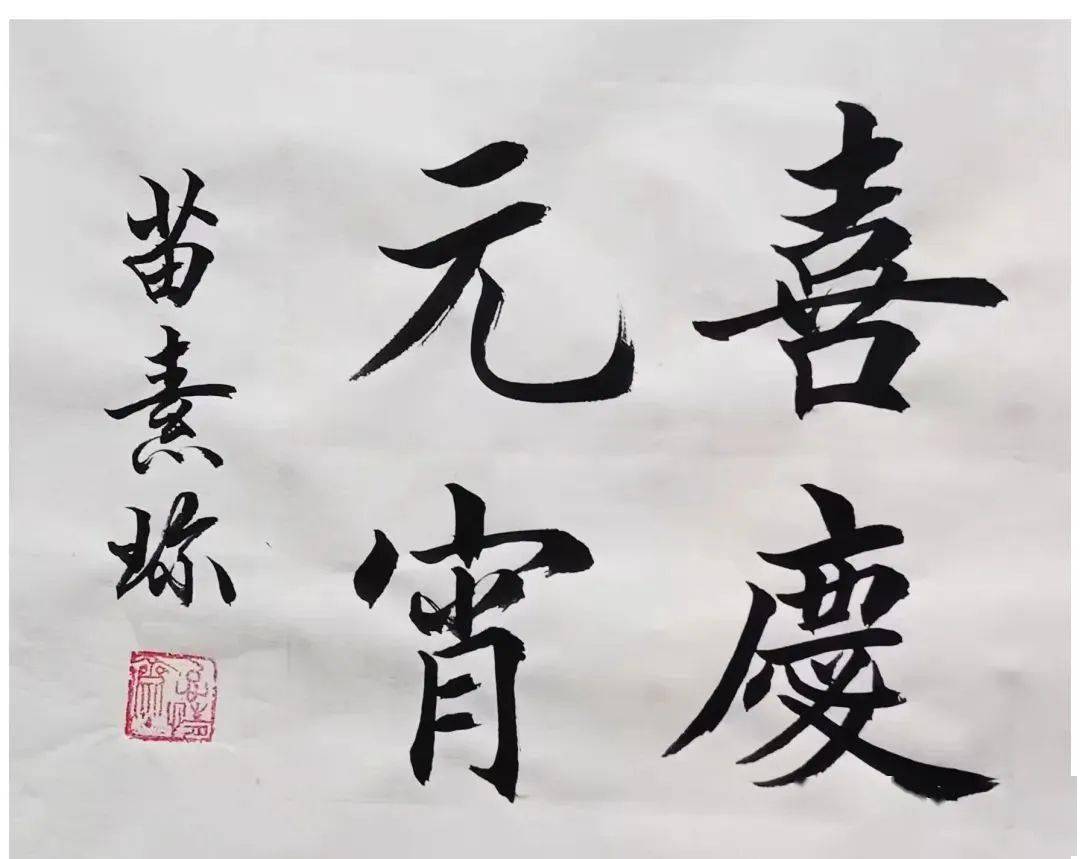 喜慶
元宵
苗素珎